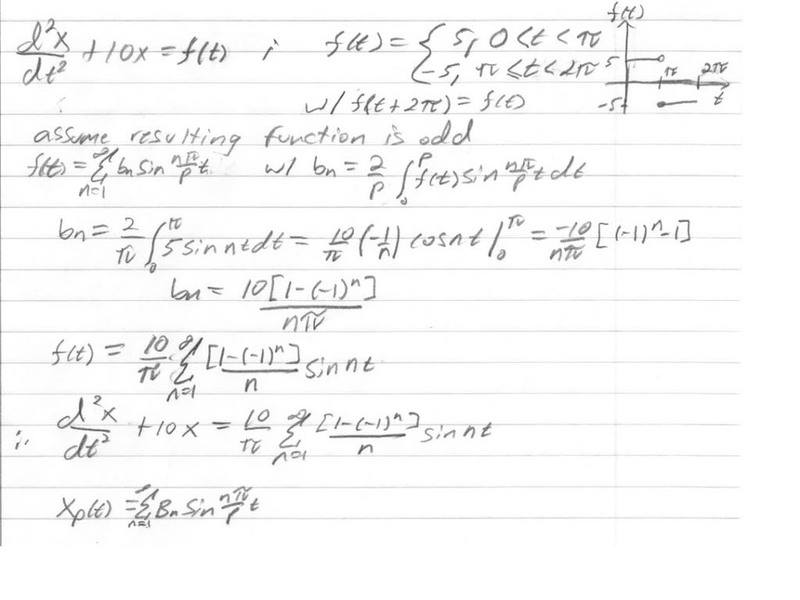 d²x/dt² + 10x = f(t) ; f(t) = { 5, 0 < t < π
{ -5, π ≤ t < 2π
w/ f(t + 2π) = f(t)
f(t)
5
π 2π
-5
t
assume resulting function is odd
f(t) = ∑_{n=1}^{∞} bn sin nπ/p t w/ bn = 2/p ∫_0^p f(t) sin nπ/p t dt
bn = 2/π ∫_0^π 5 sin nt dt = 10/π (-1/n) cos nt |_0^π = -10/nπ [(-1)^n - 1]
bn = 10[1-(-1)^n]/nπ
f(t) = 10/π ∑_{n=1}^{∞} [1-(-1)^n]/n sin nt
∴ d²x/dt² + 10x = 10/π ∑_{n=1}^{∞} [1-(-1)^n]/n sin nt
Xp(t) = ∑_{n=1}^{∞} Bn sin nπ/p t